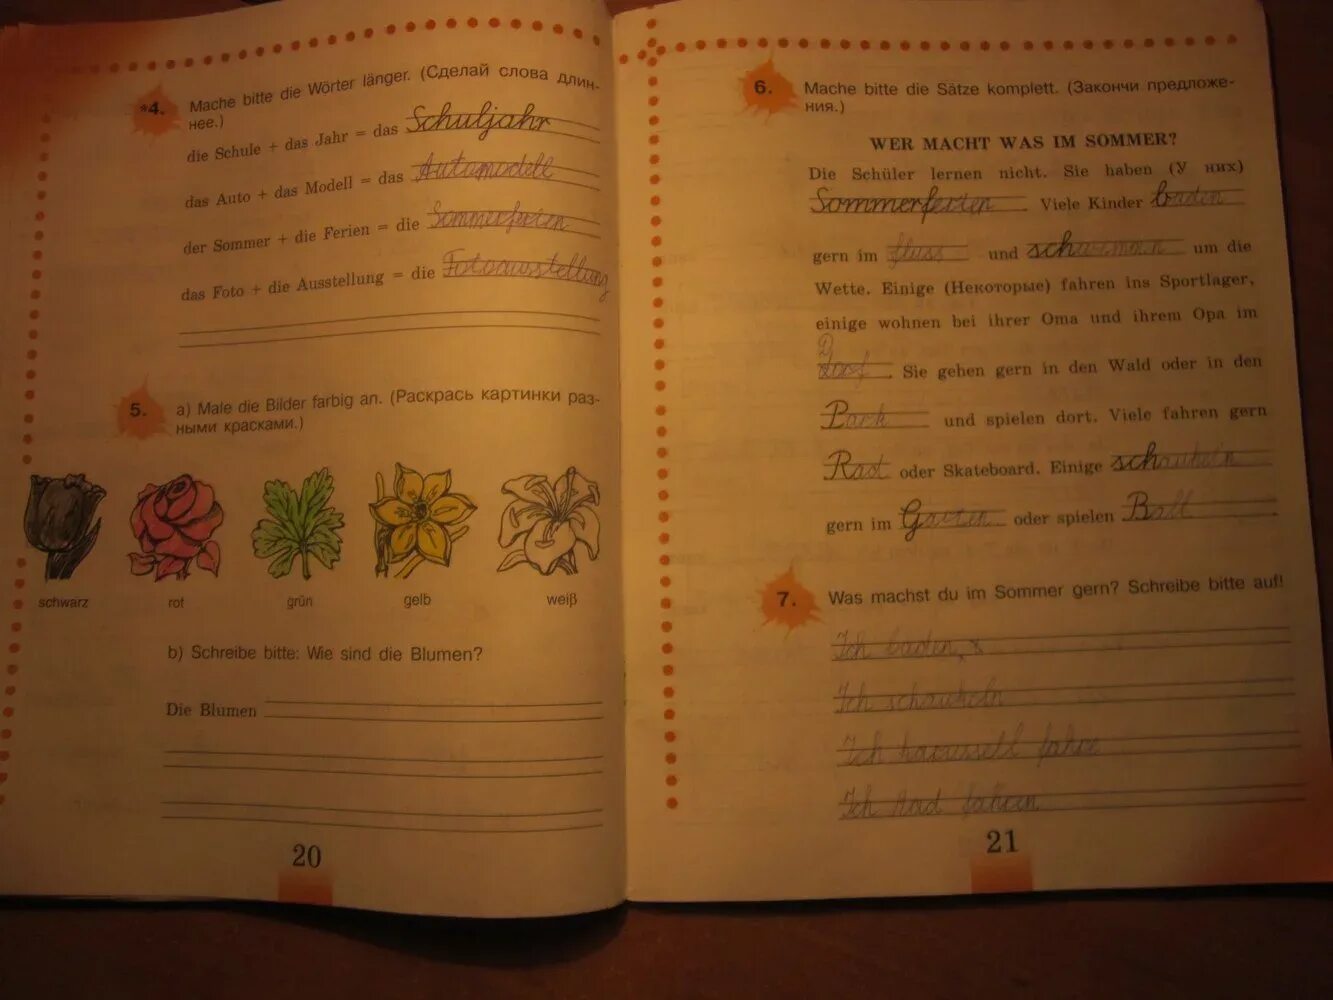 *4. Mache bitte die Wörter länger. (Сделай слова длин-
нее.)
die Schule + das Jahr = das Schuljahr
das Auto + das Modell = das Automodell
der Sommer + die Ferien = die Sommerferien
das Foto + die Ausstellung = die Fotoausstellung
5. a) Male die Bilder farbig an. (Раскрась картинки раз-
ными красками.)
schwarz rot grün gelb weiß
b) Schreibe bitte: Wie sind die Blumen?
Die Blumen
20
6. Mache bitte die Sätze komplett. (Закончи предложе-
ния.)
WER MACHT WAS IM SOMMER?
Die Schüler lernen nicht. Sie haben (У них)
Sommerferien. Viele Kinder baden
gern im fluss und schwimmen um die
Wette. Einige (Некоторые) fahren ins Sportlager,
einige wohnen bei ihrer Oma und ihrem Opa im
Dorf. Sie gehen gern in den Wald oder in den
Park und spielen dort. Viele fahren gern
Rad oder Skateboard. Einige schaukeln
gern im Garten oder spielen Ball
7. Was machst du im Sommer gern? Schreibe bitte auf!
Ich baden
Ich schaukeln
Ich karussell fahre
Ich Rad fahren
21